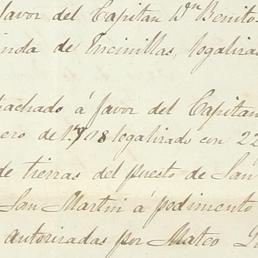 favor del Capitan Dn Benito
de Encinillas, legaliza
á favor del Capitan
de 1708 legalizado con 22
de tierras del puesto de San
San Martin á pedimento
autorizadas por Mateo